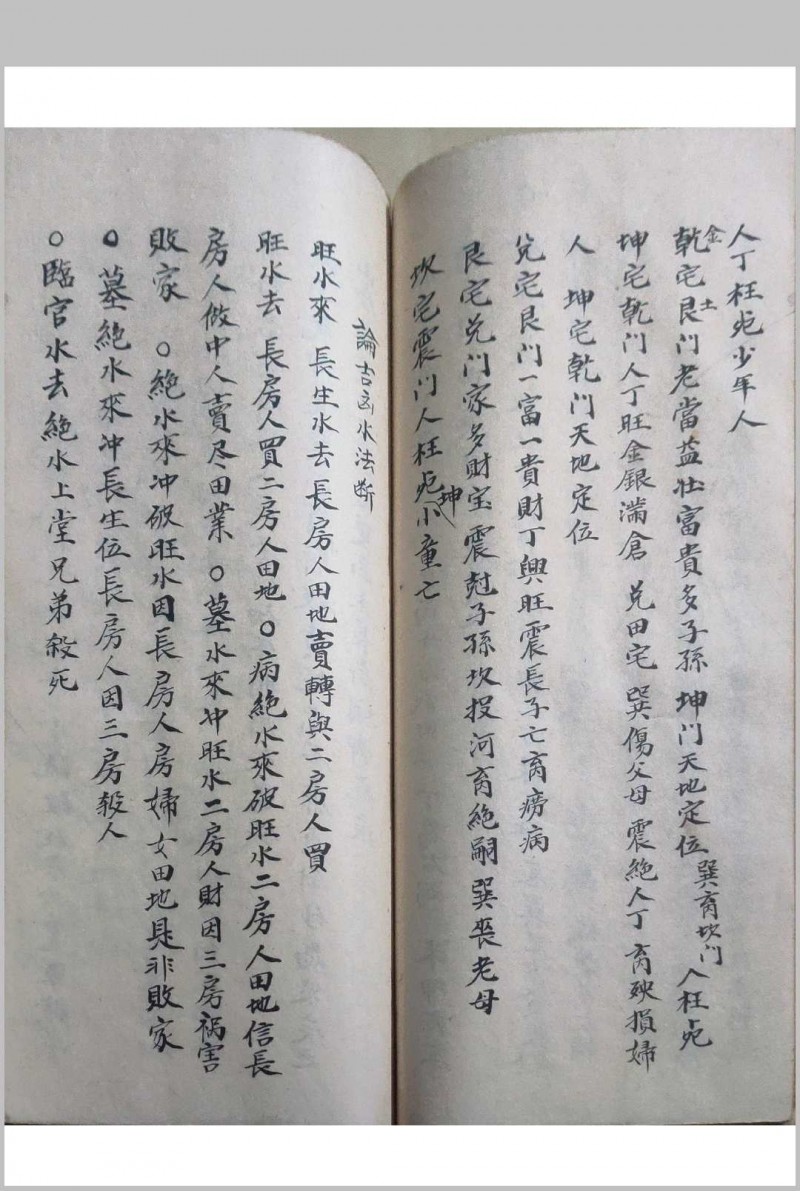 人丁枉死少年人
乾金宅艮土門老當益壯富貴多子孫 坤門天地定位 巽离坎門人枉死
坤宅乾門人丁旺金銀滿倉 兑田宅 巽傷父母 震絶人丁 离殃損婦
人 坤宅乾門天地定位
兑宅艮門一富一貴財丁興旺震長子亡离癆病
艮宅兑門家多財宝震尅子孫坎投河离絶嗣 巽丧老母
坎宅震門人枉死坤小童亡
論吉凶水法断
旺水來 長生水去長房人田地賣轉與二房人買
旺水去 長房人買二房人田地 ○病絶水來破旺水二房人田地信長
房人做中人賣尽田業 ○墓水來冲旺水二房人財因三房禍害
敗家 ○絶水來冲破旺水因長房人房婦女田地是非敗家
○墓絶水來冲長生位長房人因三房殺人
○臨官水去絶水上堂兄弟殺死